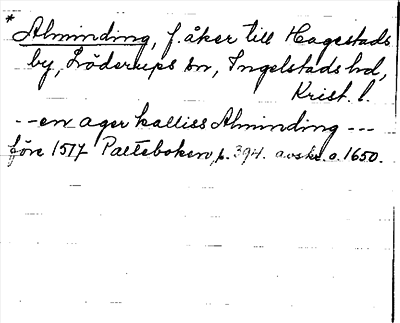 * Alminding, f. åker till Hagestads
by, Löderups sn, Ingelstads hd,
Krist. l.
--en ager kalliss Alminding ---
före 1517 Palteboken, p. 394. avskr. o. 1650.